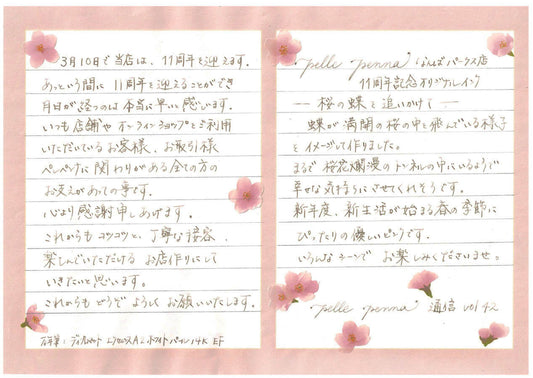 3月10日で当店は、11周年を迎えます。
あっという間に 11周年を迎えることができ
月日が経つのは本当に早い感じます。
いつも店舗やオンラインショップをご利用
いただいているお客様、お取引様
ペレペンナに関わりがある全ての方の
お支えがあっての事です。
心より感謝申しあげます。
これからも コツコツと、丁寧な接客、
楽しんでいただける お店作りにして
いきたいと思います。
これからも どうぞ よろしく お願いいたします。
万年筆：ディプロマット エクセレンスA2 ホワイトパール 14K EF
pelle penna なんばパークス店
11周年記念オリジナルインク
― 桜の蝶を追いかけて ―
蝶が満開の桜の中を飛んでいる様子
をイメージして作りました。
まるで桜花爛漫のトンネルの中にいるようで
幸せな気持ちにさせてくれそうです。
新年度、新生活が始まる春の季節に
ぴったりの優しいピンクです。
いろんなシーンで お楽しみくださいませ。
pelle penna 通信 vol 42